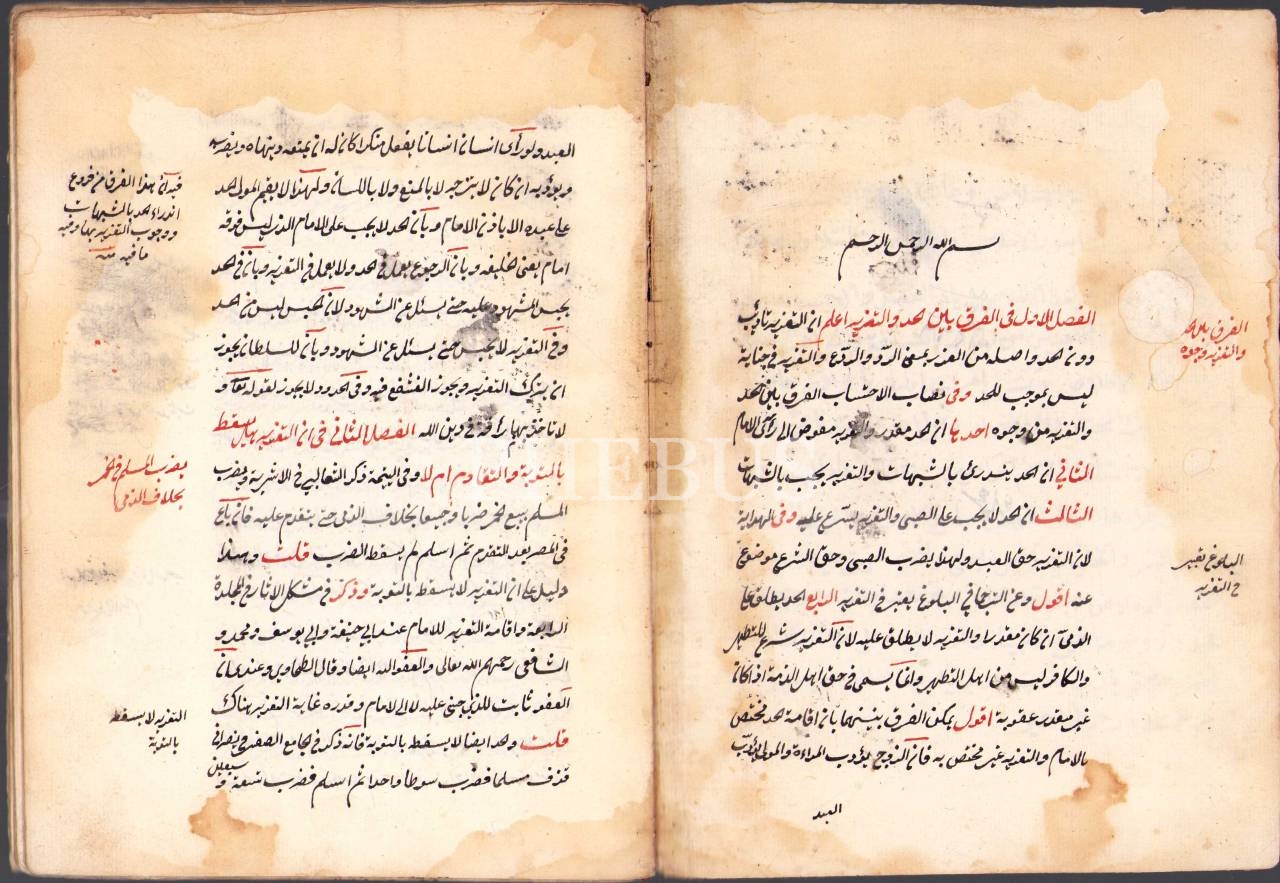 بسم الله الرحمن الرحيم
الفصل الاول فى الفرق بين الحد والتعزير اعلم ان التعزير تأديب
دون الحد واصله من العزر بمعنى الرد والردع والتعزير فى جناية
ليس بموجب للحد وفى نصاب الاحتساب الفرق بين الحد
والتعزير من وجوه احدها ان الحد مقدر والتعزير مفوض الى رأى الامام
الثانى ان الحد يندرئ بالشبهات والتعزير يجب بالشبهات
الثالث ان الحد لا يجب على الصبى والتعزير يشرع عليه وفى الهداية
لان التعزير حق العبد ولهذا يضرب الصبى وحق الشرع موضوع
عنه اقول وعن الترجمانى البلوغ يعتبر فى التعزير الرابع الحد يطلق على
الذمى ان كان مقدرا والتعزير لا يطلق عليه لان التعزير شرع للتطهير
والكافر ليس من اهل التطهير وانما يسمى فى حق اهل الذمة اذا كان
غير مقدر عقوبة اقول يمكن الفرق بينهما بان اقامة الحد مختص
بالامام والتعزير غير مختص به فان الزوج يؤدب المراءة والمولى يؤدب
العبد
الفرق بين الحد
والتعزير وجوه
البلوغ يعتبر
فى التعزير
العبد ولو رأى انسان انسانا يفعل منكرا كان له ان يمنعه وينهاه ويضربه
ويؤدبه ان كان لا ينزجر لا بالمنع ولا باللسان ولهذا لا يقيم المولى الحد
على عبده الا باذن الامام وبان الحد لا يجب على الامام الذى ليس فوقه
امام يعنى الخليفه وبان الرجوع يعمل فى الحد ولا يعمل فى التعزير وبان فى الحد
يحبس المشهود عليه حتى يسئل عن الشهود لان الحبس ليس من الحد
وفى التعزير لا يحبس حتى يسئل عن الشهود وبان للسلطان يجوز
ان يترك التعزير ويجوز التشفع فيه وفى الحدود لا يجوز لقوله تعالى و
لا تأخذكم بهما رأفة فى دين الله الفصل الثانى فى ان التعزير هل يسقط
بالتوبة والتقادم ام لا وفى اليتيمة ذكر الثعالبى فى الاشربة ويضرب
المسلم ببيع الخمر ضربا وجيعا بخلاف الذمى حتى يتقدم عليه فان باع
فى المصر بعد التقدم ثم اسلم لم يسقط الضرب قلت وهذا
دليل على ان التعزير لا يسقط بالتوبة وذكر فى مشكل الاثار فى المجلدة
الرابعة واقامة التعزير للامام عند ابى حنيفة وابى يوسف ومحمد و
الشافعى رحمهم الله تعالى والعفو الله ايضا وقال الطحاوى وعندى ان
العفو ثابت للذى جنى عليه لا الى الامام وقدره غاية التعزير هناك
قلت وهذا ايضا لا يسقط بالتوبة فانه ذكر فى الجامع الصغير فى نصرانى
قذف مسلما فضرب سوطا واحدا ثم اسلم فضرب تسعة و
سبعين
فيه ان هذا الفرق من فروع
اندراء الحد بالشبهات
ووجوب التعزير بها وفيه
ما فيه منه
يضرب المسلم فى الخمر
بخلاف الذمى
التعزير لا يسقط
بالتوبة
PHEBUS